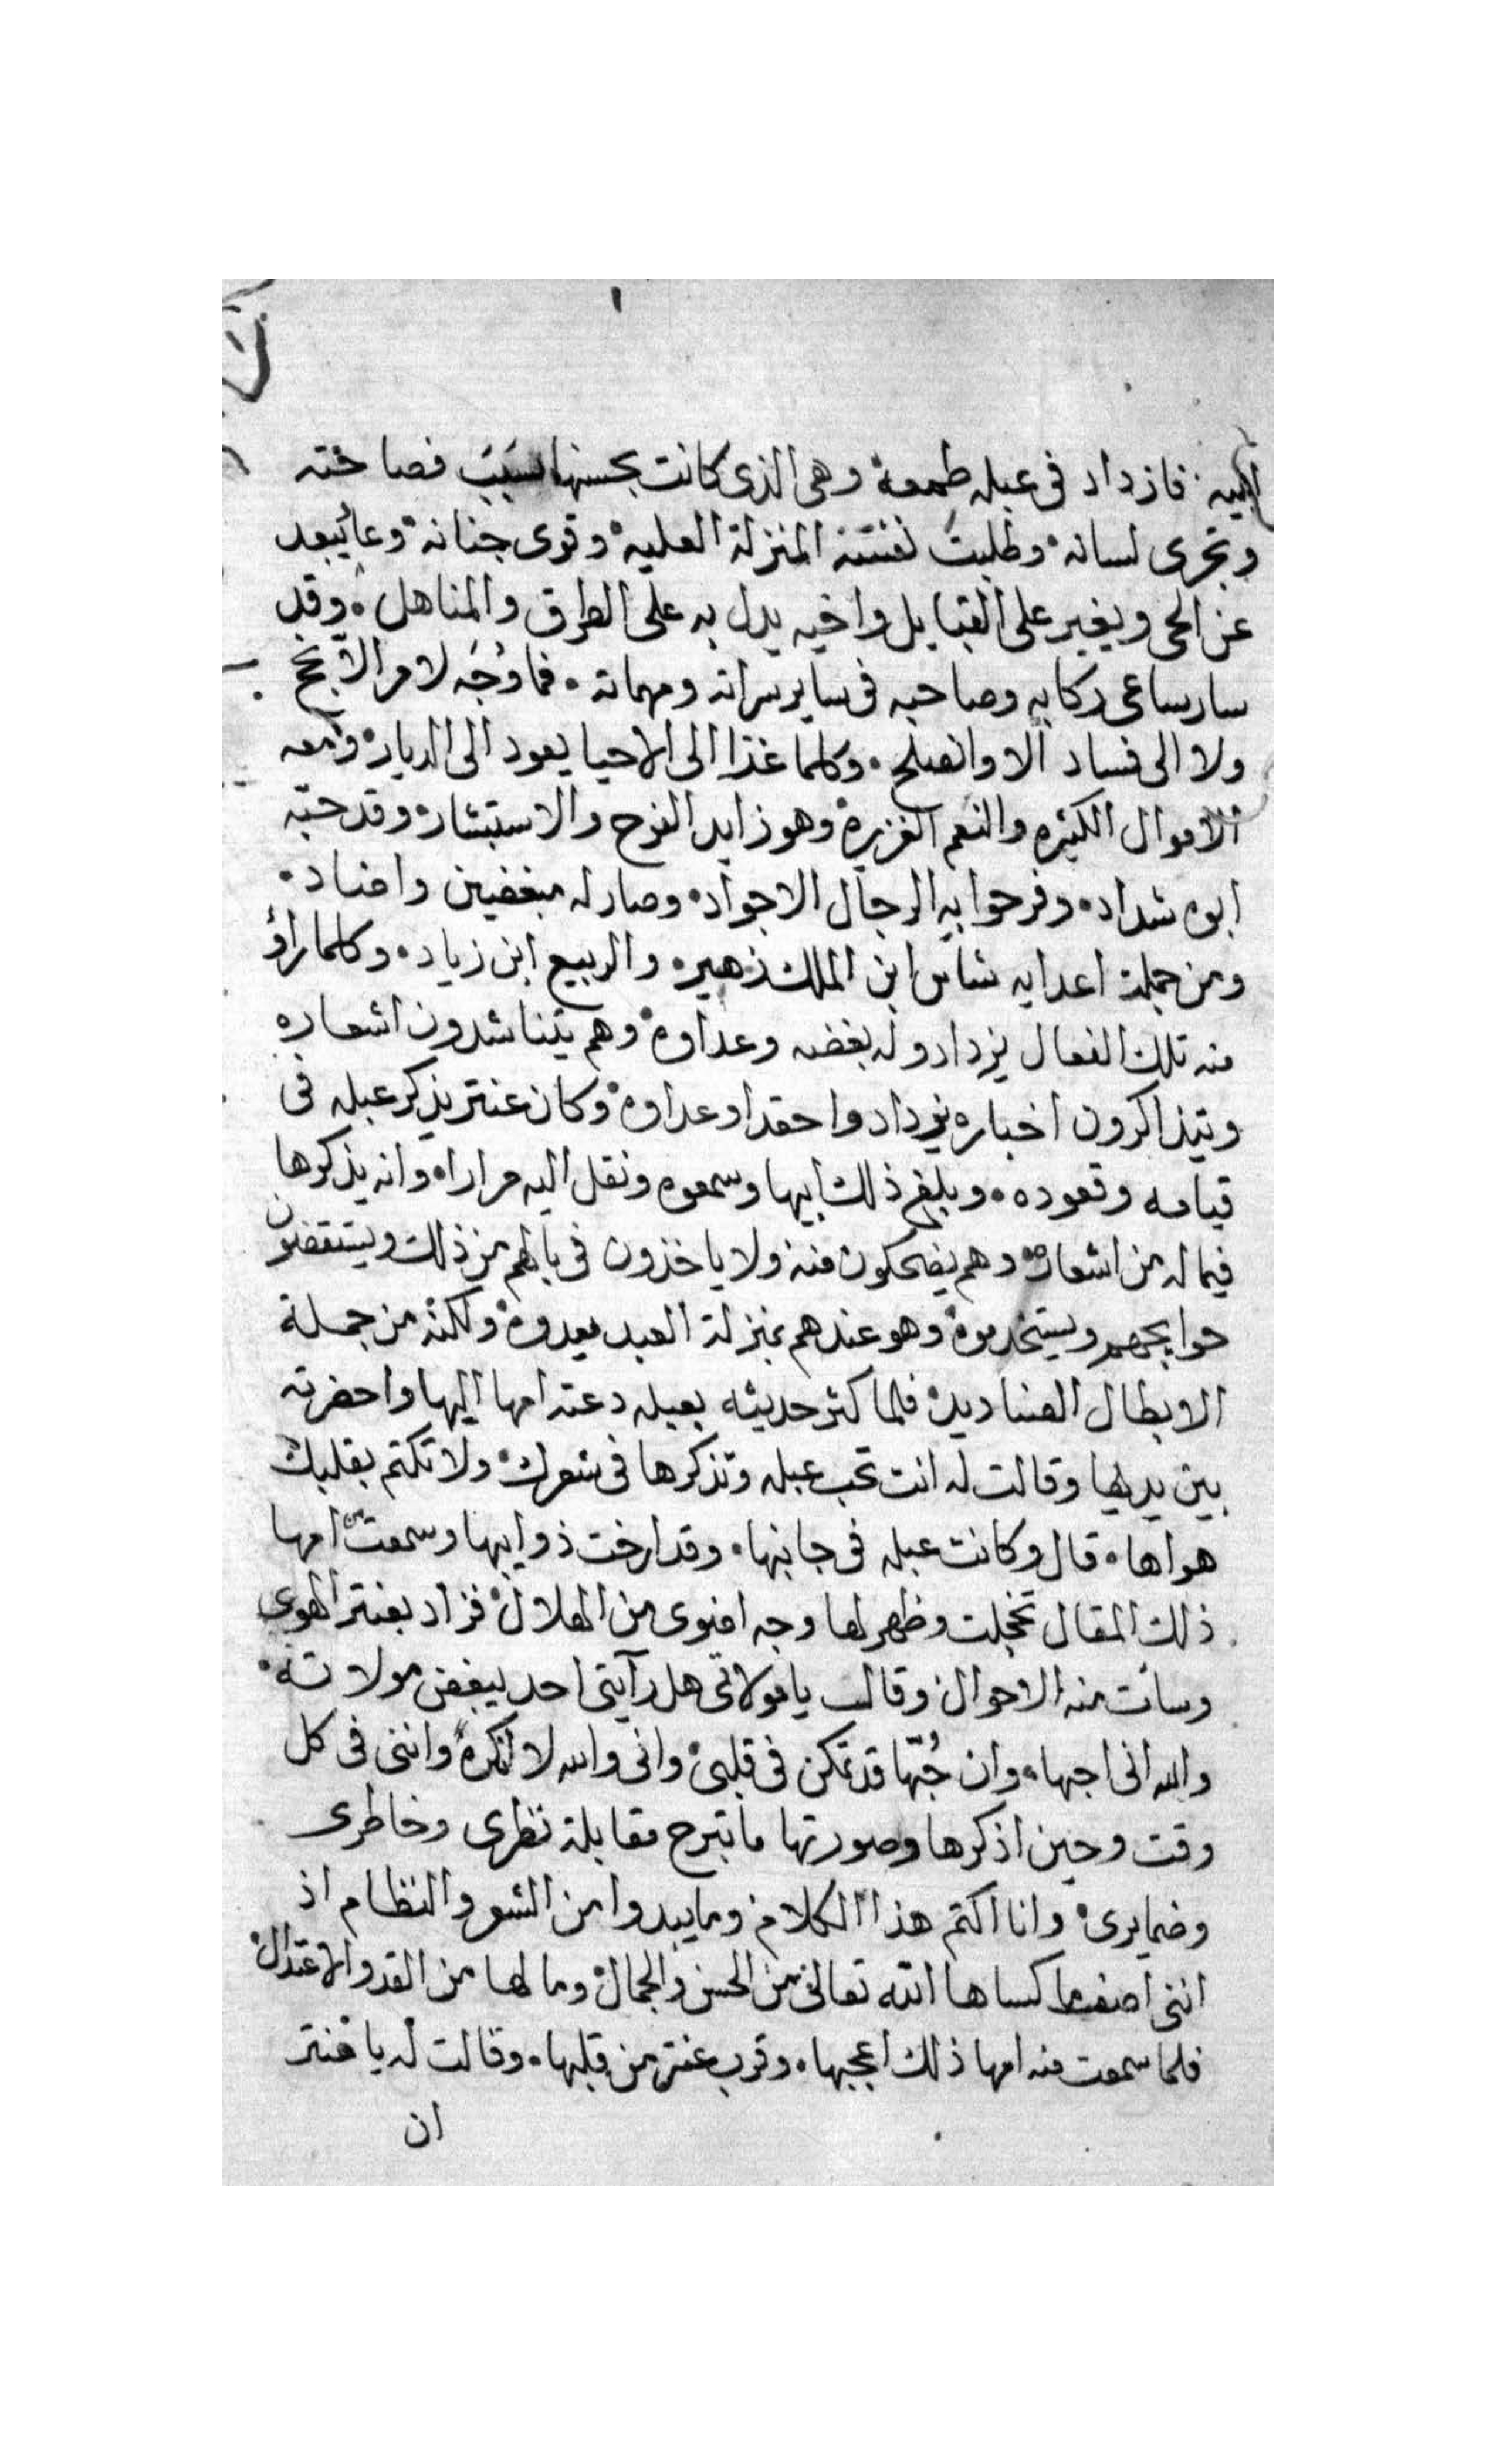 اليه فازداد فى عبله طمعه وهى الذى كانت بحسنها سبب فصاحته
وتجرى لسانه وطلبت نفسه المنزلة العليه وقوى جنانه وعاد يبعد
عن الحى ويغير على القبايل واخيه يدل به على الطرق والمناهل وقد
سار ساعى ركابه وصاحبه فى ساير سراته ومهماته فما وجه لامر الا نجح
ولا الى فساد الا وانصلح وكلما غذا الى الاحيا يعود الى الديار ومعه
الاموال الكثيره والنعم الغزيره وهو زايد الفرح والاستبشار وقد حبه
ابوه شداد وفرحوا به الرجال الاجواد وصار له مبغضين واضداد
ومن جملة اعدايه شاس ابن الملك زهير والربيع ابن زياد وكلما راؤ
منه تلك الفعال يزدادو له بغضه وعداوه وهم يتناشدون اشعاره
ويتذاكرون اخباره يزدادوا حقدا وعداوه وكان عنتر يذكر عبله فى
قيامه وقعوده وبلغ ذلك ابيها وسمعوه ونقل اليه مرارا وانه يذكرها
فيما له من اشعاره وهم يضحكون منه ولا ياخذون فى بالهم من ذلك ويستقضون
حوايجهم ويستخدموه وهو عندهم بمنزلة العبد يعدوه ولكنه من جملة
الابطال الصناديد فلما كثر حديثه بعبله دعته امها اليها واحضرته
بين يديها وقالت له انت تحب عبله وتذكرها فى شعرك ولا تكتم بقلبك
هواها قال وكانت عبله فى جانبها وقد ارخت ذوايبها وسمعت من امها
ذلك المقال تخجلت وظهر لها وجه اضوى من الهلال فزاد بعنتر الهوى
وسات منه الاحوال وقال يا مولاتى هل رآيتى احد يبغض مولاته
والله انى احبها وان حُبّها قد تمكن فى قلبى وانى والله لا انكره واننى فى كل
وقت وحين اذكرها وصورتها ما تبرح مقابلة نظرى وخاطرى
وضمايرى وانا اكتم هذا الكلام وما يبدوا من الشعر والنظام اذ
اننى اصف ما كساها الله تعالى من الحسن والجمال وما لها من القد والاعتدال
فلما سمعت منه امها ذلك اعجبها وقرب عنتر من قلبها وقالت له يا عنتر
ان